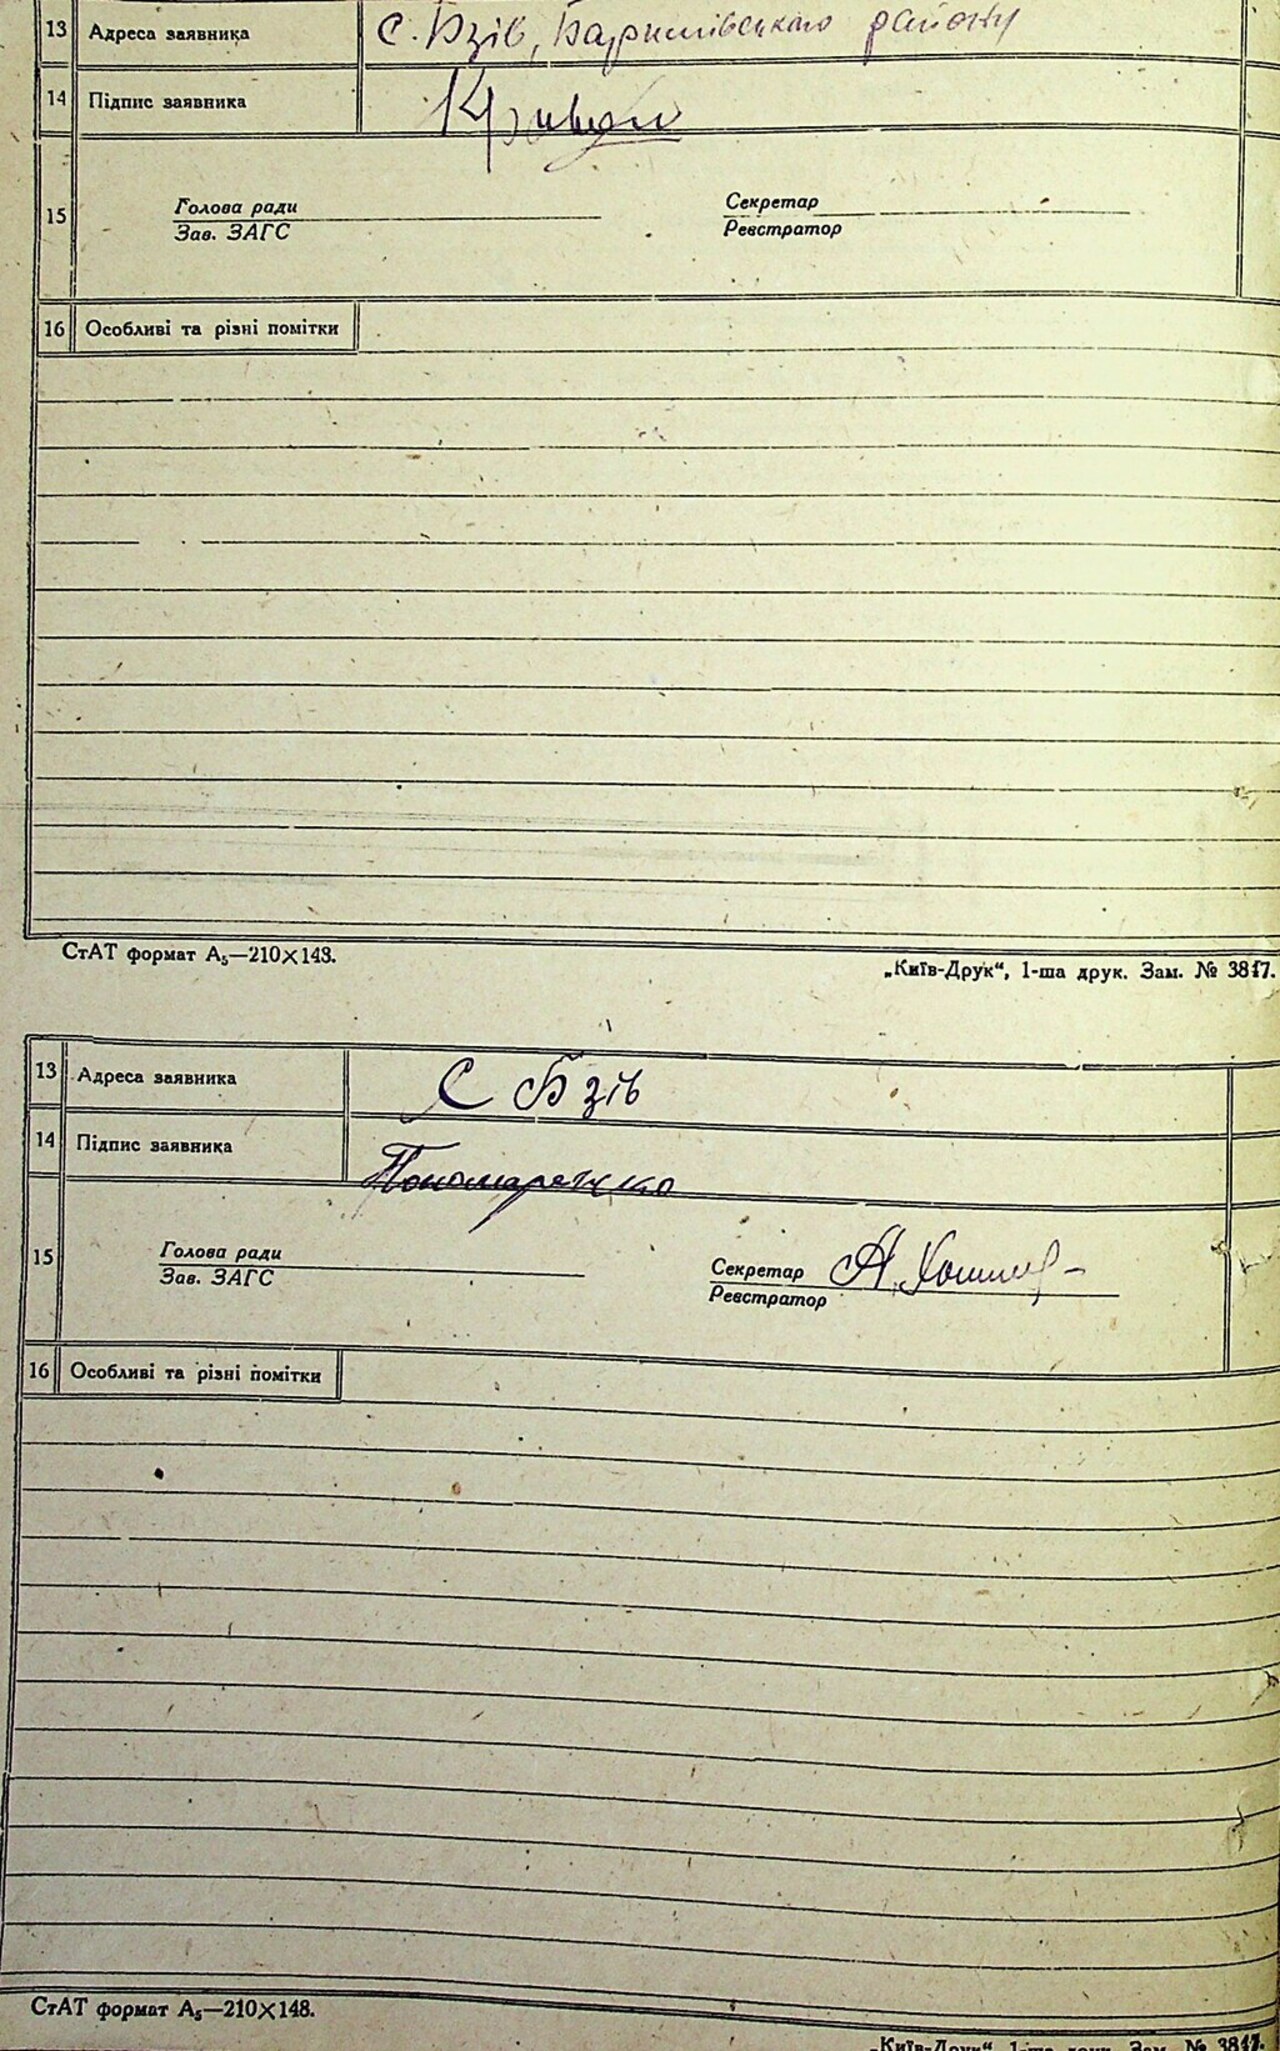 13 Адреса заявника с. Бзів, Баришівського району
14 Підпис заявника
15 Голова ради Секретар
Зав. ЗАГС Реєстратор
16 Особливі та різні помітки
СтАТ формат А₅—210×148.
„Київ-Друк“, 1-ша друк. Зам. № 3817.
13 Адреса заявника С Бзів
14 Підпис заявника Пономаренко
15 Голова ради Секретар А.
Зав. ЗАГС Реєстратор
16 Особливі та різні помітки
СтАТ формат А₅—210×148.
„Київ-Друк“, 1-ша друк. Зам. № 3817.